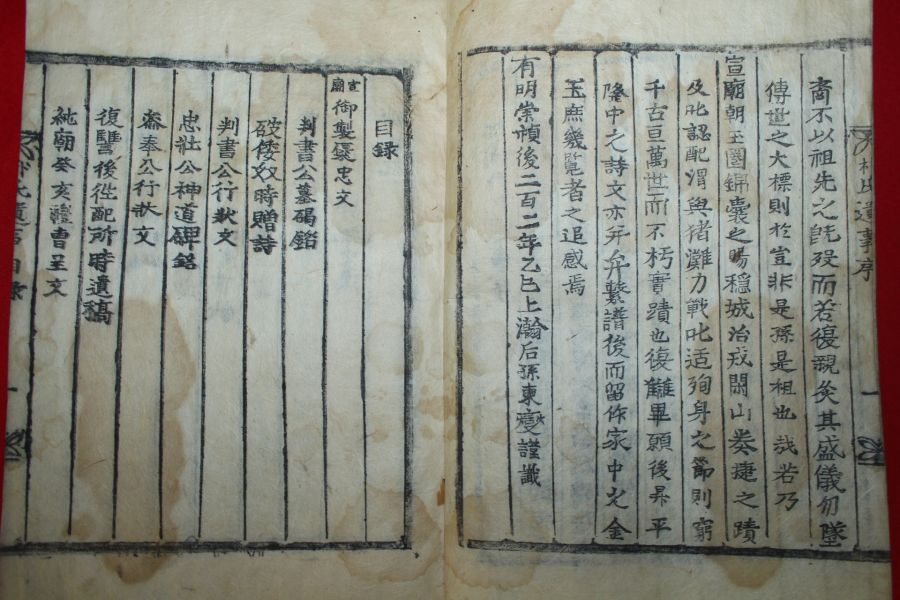 裔不以祖先之旣歿而若復親炙其盛儀勿墜
傳世之大標則於豈非是孫是祖也哉若乃
宣廟朝玉圈錦囊之賜穩城治戎閑山奏捷之蹟
及此認配渭與猪灘力戰叱适殉身之節則窮
千古亘萬世而不朽實蹟也復讎畢願後昇平
隆中之詩文亦幷弁繫譜後而留作家中之金
玉庶幾覧者之追感焉
有明崇禎後二百二年乙巳上瀚后孫東燮謹識
遺事序
一
目錄
宣廟御製褒忠文
判書公墓碣銘
破倭奴時贈詩
判書公行狀文
忠壯公神道碑銘
泰公行狀文
復讐後徙配所時遺稿
純廟癸亥禮曹呈文
氏遺事目錄
一